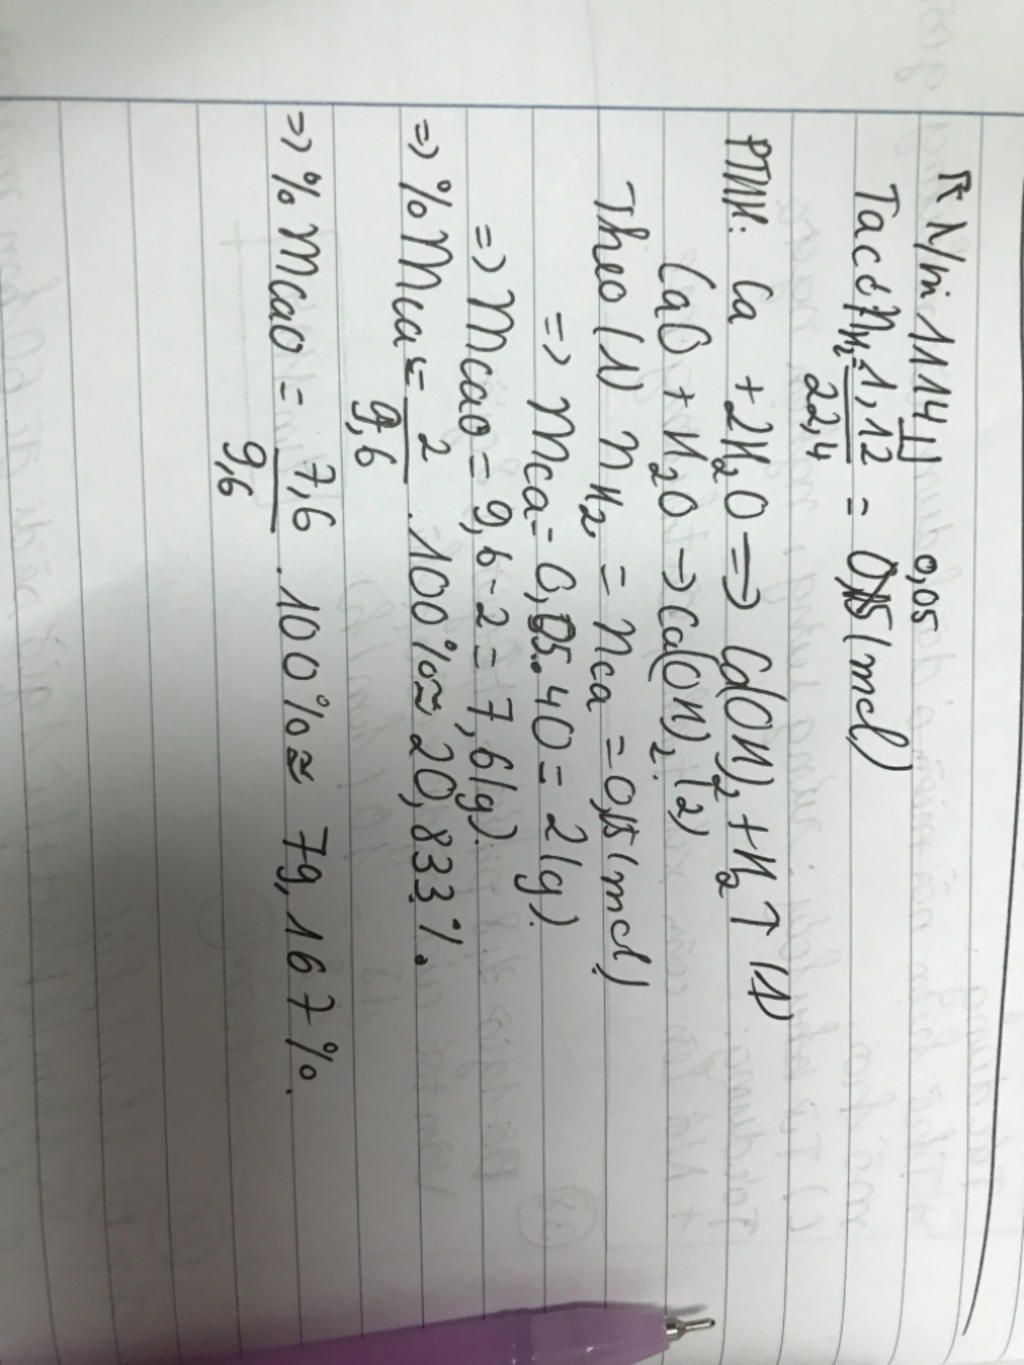 114
0,05
Ta có nH2 = 1,12/22,4 = 0,05 (mol)
PTHH: Ca + 2H2O => Ca(OH)2 + H2 ↑ (1)
CaO + H2O → Ca(OH)2. (2)
Theo (1) nH2 = nCa = 0,05 (mol)
=> mCa = 0,05.40 = 2 (g).
=> mCaO = 9,6 - 2 = 7,6 (g).
=> % mCa = 2/9,6 . 100% ≈ 20,833%.
=> % mCaO = 7,6/9,6 . 100% ≈ 79,167%.